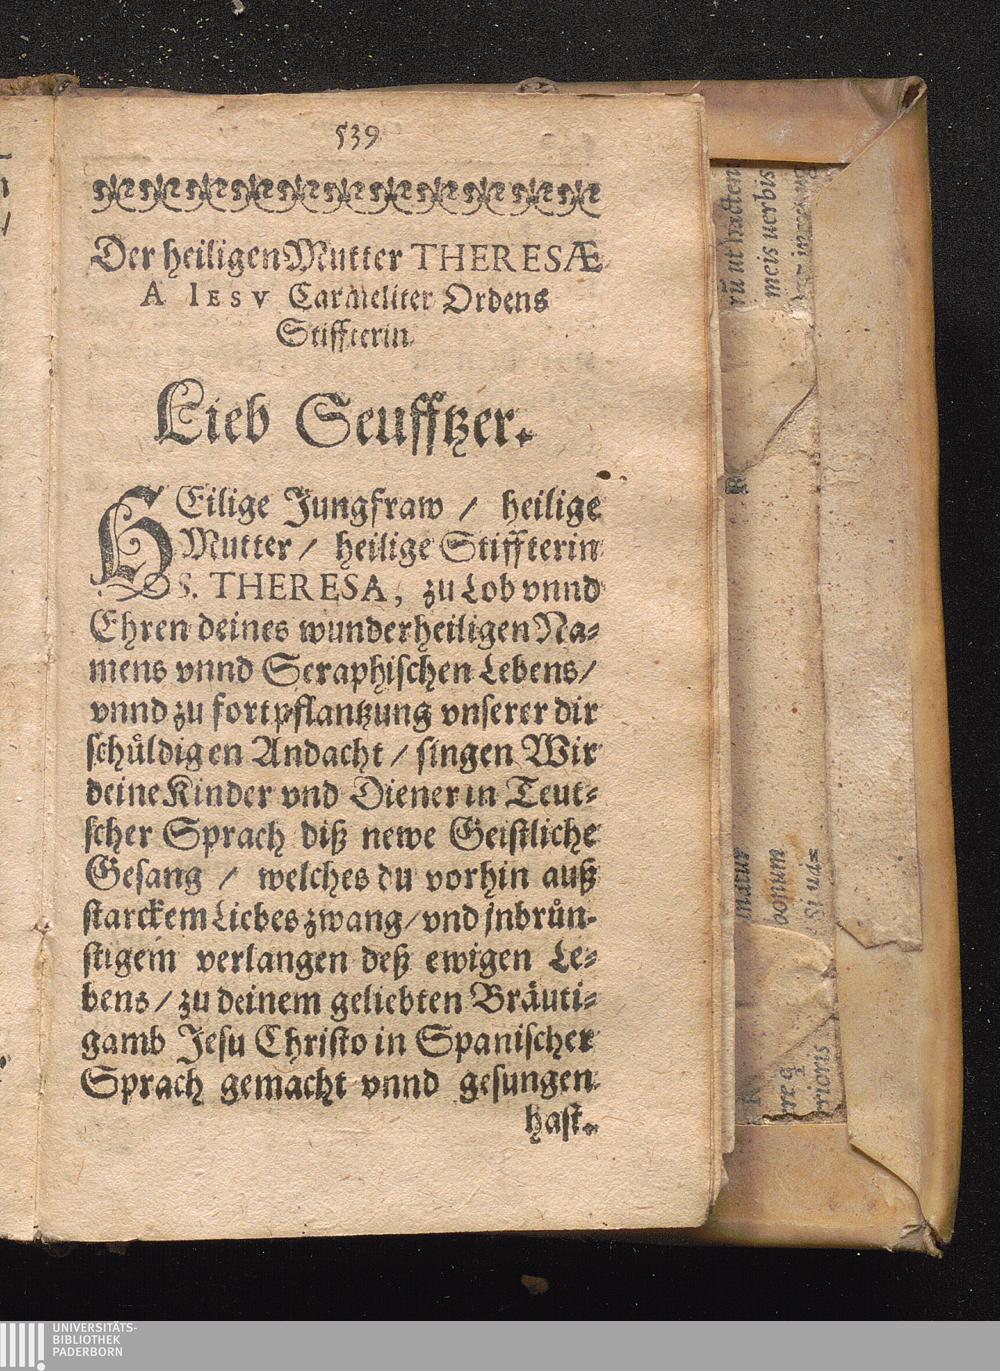 539
Der heiligen Mutter THERESÆ
A IESV Carmeliter Ordens
Stiffterin
Lieb Seufftzer.
HEilige Jungfraw / heilige
Mutter / heilige Stiffterin
S. THERESA, zu Lob vnnd
Ehren deines wunderheiligen Na-
mens vnnd Seraphischen Lebens /
vnnd zu fortpflantzung vnserer dir
schůldigen Andacht / singen Wir
deine Kinder vnd Diener in Teut-
scher Sprach diß newe Geistliche
Gesang / welches du vorhin auß
starckem Liebes zwang / vnd jnbrůn-
stigem verlangen deß ewigen Le-
bens / zu deinem geliebten Bräuti-
gamb Jesu Christo in Spanischer
Sprach gemacht vnnd gesungen
hast.
rũ ut hacten
meis uerbis
bonum
prioris
UNIVERSITÄTS-
BIBLIOTHEK
PADERBORN